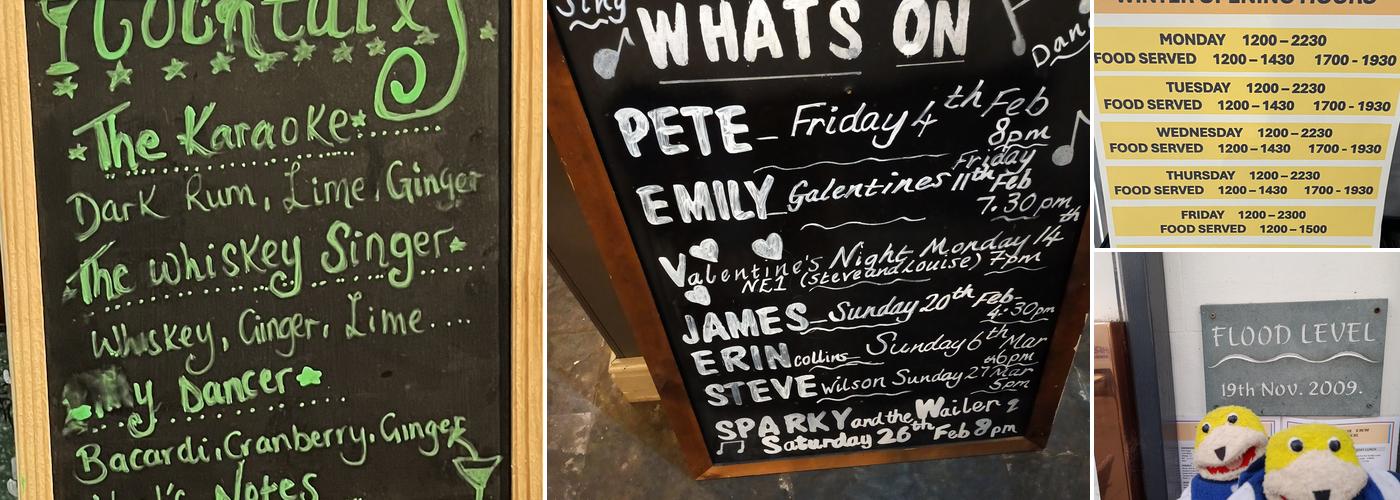 Cocktails
The Karaoke
Dark Rum, Lime, Ginger
The Whiskey Singer
Whiskey, Ginger, Lime....
Dancer
Bacardi, Cranberry, Ginger
Notes
Sing
WHATS ON
PETE - Friday 4th Feb
8pm
EMILY Galentines Friday 11th Feb
7.30pm
Valentine's Night Monday 14th
NE1 (Steve and Louise) 7pm
JAMES Sunday 20th Feb-
4:30pm
ERIN collins Sunday 6th Mar
6pm
STEVE Wilson Sunday 27 Mar
5pm
SPARKY and the Wailer
Saturday 26th Feb 8pm
WINTER OPENING HOURS
MONDAY 1200-2230
FOOD SERVED 1200-1430 1700-1930
TUESDAY 1200-2230
FOOD SERVED 1200-1430 1700-1930
WEDNESDAY 1200-2230
FOOD SERVED 1200-1430 1700-1930
THURSDAY 1200-2230
FOOD SERVED 1200-1430 1700-1930
FRIDAY 1200-2300
FOOD SERVED 1200-1500
FLOOD LEVEL
19th Nov. 2009.